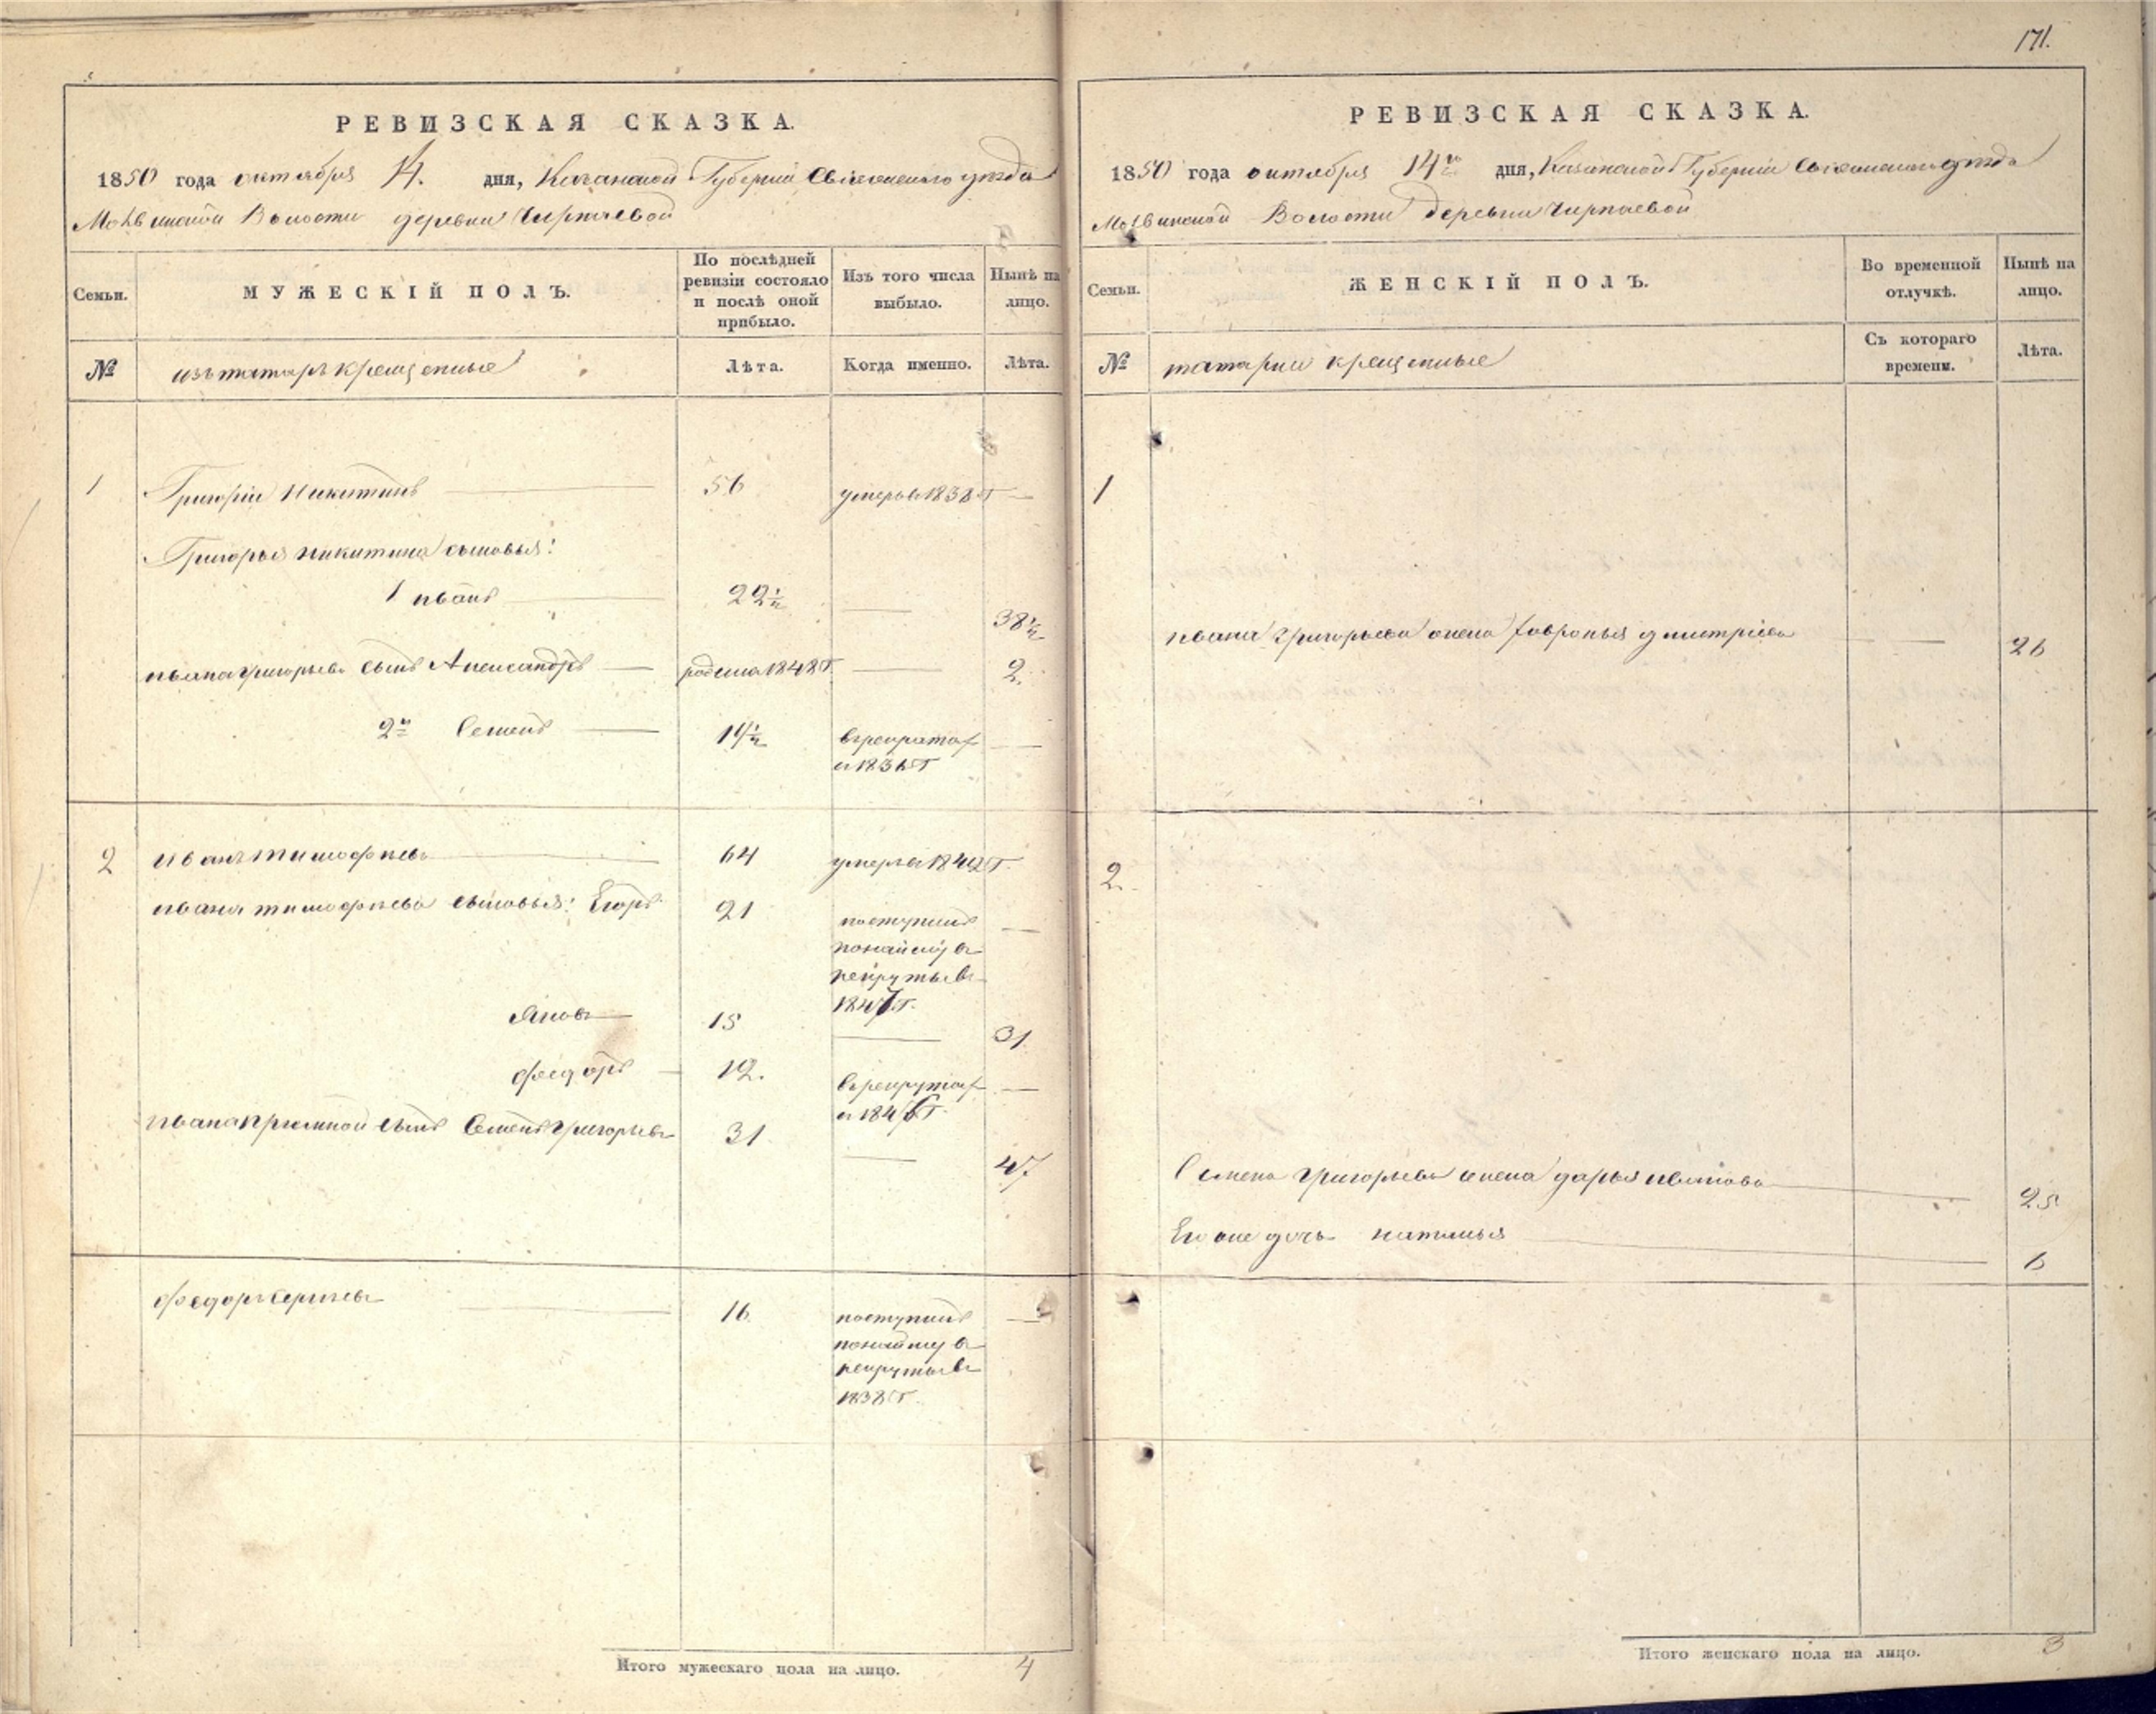 171.
РЕВИЗСКАЯ СКАЗКА.
1850 года октября 14. дня, Казанской Губернии Свіяжскаго уезда
Волости деревни
Семьи.
МУЖЕСКІЙ ПОЛЪ.
По послѣдней ревизіи состояло и послѣ оной прибыло.
Изъ того числа выбыло.
Нынѣ на лицо.
№
изъ татаръ крещенные
Лѣта.
Когда именно.
Лѣта.
1 Григорій Никитинъ 56 умеръ в 1838 Г
Григорья никитина сыновья:
1 иванъ 22½ 38½
ивана григорьева сынъ Александръ родился 1848 Г. 2
2й Семенъ в рекрутах
в Г
2 иванъ тимофеевъ 64 умеръ в Г.
ивана тимофеева сыновья: Егоръ 21 поступилъ
по найму в
рекруты в
1847 Г.
Яковъ 15 31
Федоръ 12. в рекрутах
в Г.
ивана приемной сынъ Семенъ григорьевъ 31 47
федоръ сергеевъ 16 поступилъ
по найму в
рекруты в
1838 Г.
Итого мужескаго пола на лицо. 4
РЕВИЗСКАЯ СКАЗКА.
1850 года октября 14го дня, Казанской Губернии Свіяжскаго уезда
Волости деревни
Семьи.
ЖЕНСКІЙ ПОЛЪ.
Во временной отлучкѣ.
Нынѣ на лицо.
№
татары крещенные
Съ котораго времени.
Лѣта.
1
ивана григорьева жена февронья дмитриева 26
2.
Семена григорьева жена дарья иванова 25
Его же дочь наталья 6
Итого женскаго пола на лицо. 3